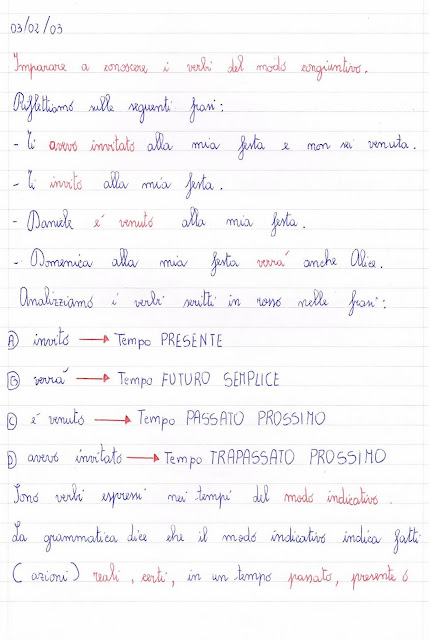 03/02/03
Imparare a conoscere i verbi del modo congiuntivo.
Riflettiamo sulle seguenti frasi:
- Ti avevo invitato alla mia festa e non sei venuta.
- Ti invito alla mia festa.
- Daniele é venuto alla mia festa.
- Domenica alla mia festa verrá anche Alice.
Analizziamo i verbi scritti in rosso nelle frasi:
A invito → Tempo PRESENTE
B verrá → Tempo FUTURO SEMPLICE
C é venuto → Tempo PASSATO PROSSIMO
D avevo invitato → Tempo TRAPASSATO PROSSIMO
Sono verbi espressi nei tempi del modo indicativo.
La grammatica dice che il modo indicativo indica fatti
(azioni) reali, certi, in un tempo passato, presente o